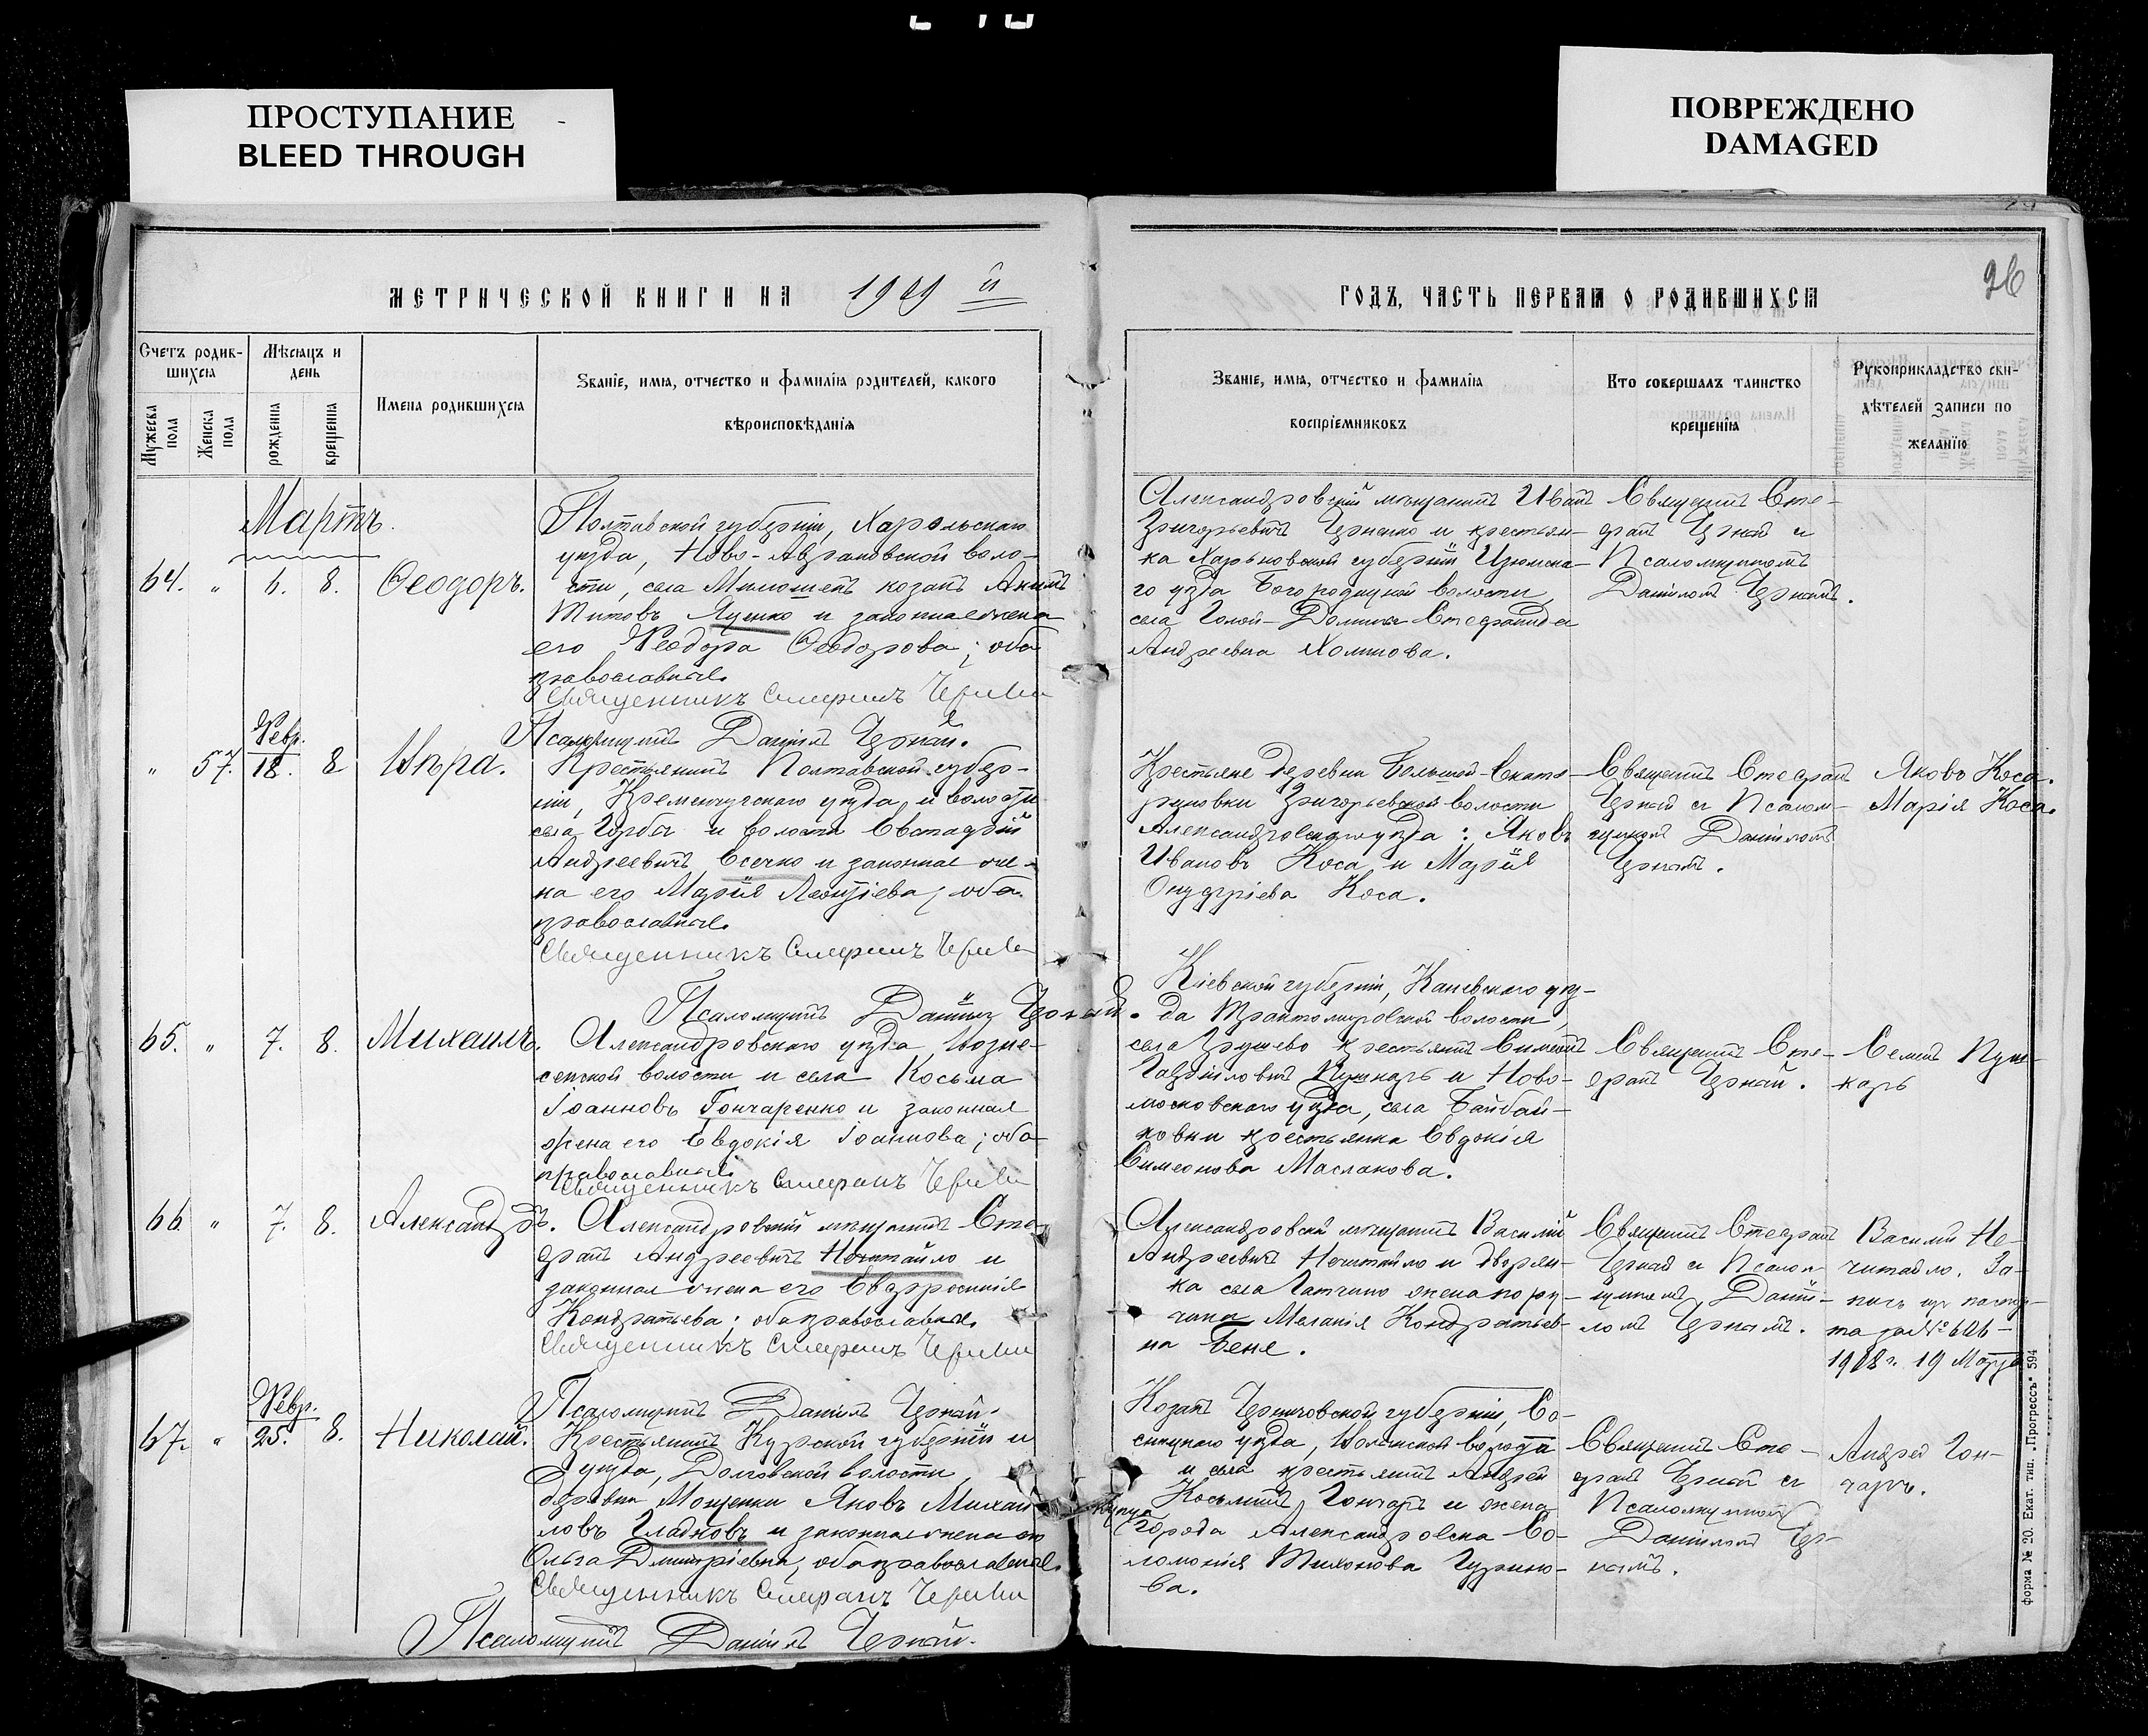 ПРОСТУПАНИЕ
BLEED THROUGH
ПОВРЕЖДЕНО
DAMAGED
МЕТРИЧЕСКОЙ КНИГИ НА 1909 й
ГОДЪ, ЧАСТЬ ПЕРВАЯ О РОДИВШИХСЯ
26
Счетъ родив-
шихся
Мужеска пола
Женска пола
Мѣсяцъ и
день
рожденія
крещенія
Имена родившихся
Званіе, имя, отчество и фамилія родителей, какого
вѣроисповѣданія
Званіе, имя, отчество и фамилія
воспріемниковъ
Кто совершалъ таинство
крещенія
Рукоприкладство сви-
дѣтелей записи по
желанію
Мартъ.
64. " 6. 8. Ѳеодоръ.
Полтавской губерніи, Хорольскаго
уѣзда, Ново-Аврамовской воло-
сти, села козакъ
Титовъ Яценко и законная жена
его Ѳеодора Ѳеодорова; оба
православные.
Священникъ Стефанъ Черный
Псаломщикъ Даніилъ Черный.
Александровскій мѣщанинъ Иванъ
Григорьевичъ и крестьян-
ка Харьковской губерніи Изюмска-
го уѣзда Богородицкой волости,
села Голой-Долины Стефанида
Андреевна Холинова.
Священникъ Сте-
фанъ Черный и
Псаломщикомъ
Даніиломъ Чернымъ.
" 57. Февр. 18. 8 Кира.
Крестьянинъ Полтавской губер-
ніи, Кременчугскаго уѣзда, и волости
села и волости Евстафій
Андреевичъ Есечко и законная же-
на его Марія Леонтіева; оба
православные.
Священникъ Стефанъ Черный
Псаломщикъ Даніилъ Черный.
Крестьяне деревни Большой-Екате-
риновки Григорьевской волости
Александровскаго уѣзда: Яковъ
Ивановъ Коса и Марія
Онуфріева Коса.
Священникъ Стефанъ
Черный съ Псалом-
щикомъ Даніиломъ
Чернымъ.
Яковъ Коса.
Марія Коса.
65. " 7. 8. Михаилъ.
Александровскаго уѣзда, Возне-
сенской волости и села Косьма
Іоанновъ Гончаренко и законная
жена его Евдокія Іоаннова; оба
православные.
Священникъ Стефанъ Черный
Кіевской губерніи, Каневскаго уѣз-
да Трактомировской волости,
села Грушево крестьянинъ Симеонъ
Гавриловичъ Пушкарь и Ново-
московскаго уѣзда, села Байбай-
ковки крестьянка Евдокія
Симеонова Маслакова.
Священникъ Сте-
фанъ Черный.
Семенъ Пуш-
карь
66 " 7. 8. Александръ.
Александровскій мѣщанинъ Сте-
фанъ Андреевичъ Нечитайло и
законная жена его Евфросинія
Кондратьева; оба православные.
Священникъ Стефанъ Черный
Псаломщикъ Даніилъ Черный.
Александровскій мѣщанинъ Василій
Андреевичъ Нечитайло и дворян-
ка села Гатчино жена пору-
чика Меланія Кондратьев-
на Бене.
Священникъ Стефанъ
Черный съ Псалом-
щикомъ Даніи-
ломъ Чернымъ.
Василій Не-
читайло. За-
пись
та за № 606-
1908 г. 19 Марта
67. " Февр. 25. 8. Николай.
Крестьянинъ Курской губерніи и
уѣзда, Долговской волости,
деревни Мощенки Яковъ Михаи-
ловъ Гладковъ и законная жена его
Ольга Дмитріевна; оба православные.
Священникъ Стефанъ Черный
Псаломщикъ Даніилъ Черный.
Козакъ Черниговской губерніи, Со-
сницкаго уѣзда, Волынской волости
и села крестьянинъ Андрей
Косьминъ Гончаръ и жена
купца
города Александровска Со-
ломонія Тихонова Гурино-
ва.
Священникъ Сте-
фанъ Черный съ
Псаломщикомъ
Даніиломъ Чер-
нымъ.
Андрей Гон-
чаръ.
форма № 20. Екат. тип. „Прогрессъ“ 594